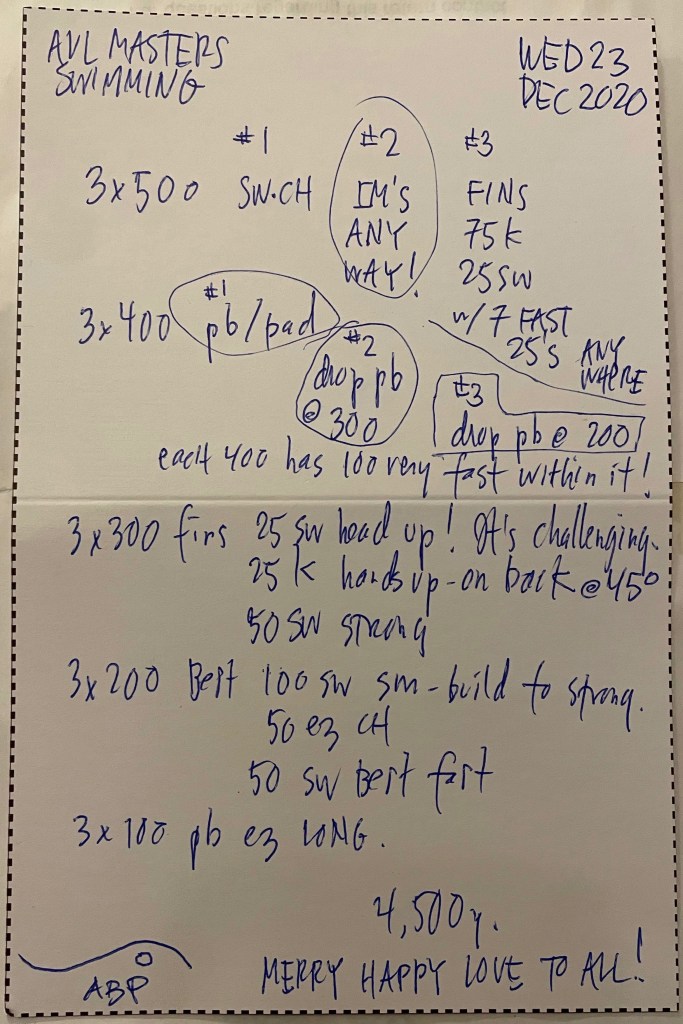 AVL MASTERS
SWIMMING
WED 23
DEC 2020
#1 #2 #3
3x500 SW.CH IM'S FINS
ANY 75K
WAY! 25SW
w/7 FAST
25'S ANY
WHERE
3x400 #1 pb/pad
#2
drop pb
@ 300
#3
drop pb @ 200
each 400 has 100 very fast within it!
3x300 fins 25 SW head up! It's challenging.
25 K hands up-on back @ 45°
50 SW strong
3x200 Best 100 sw sm-build to strong.
50 ez CH
50 SW Best fast
3x100 pb ez LONG.
4,500y.
ABP
MERRY HAPPY LOVE TO ALL!